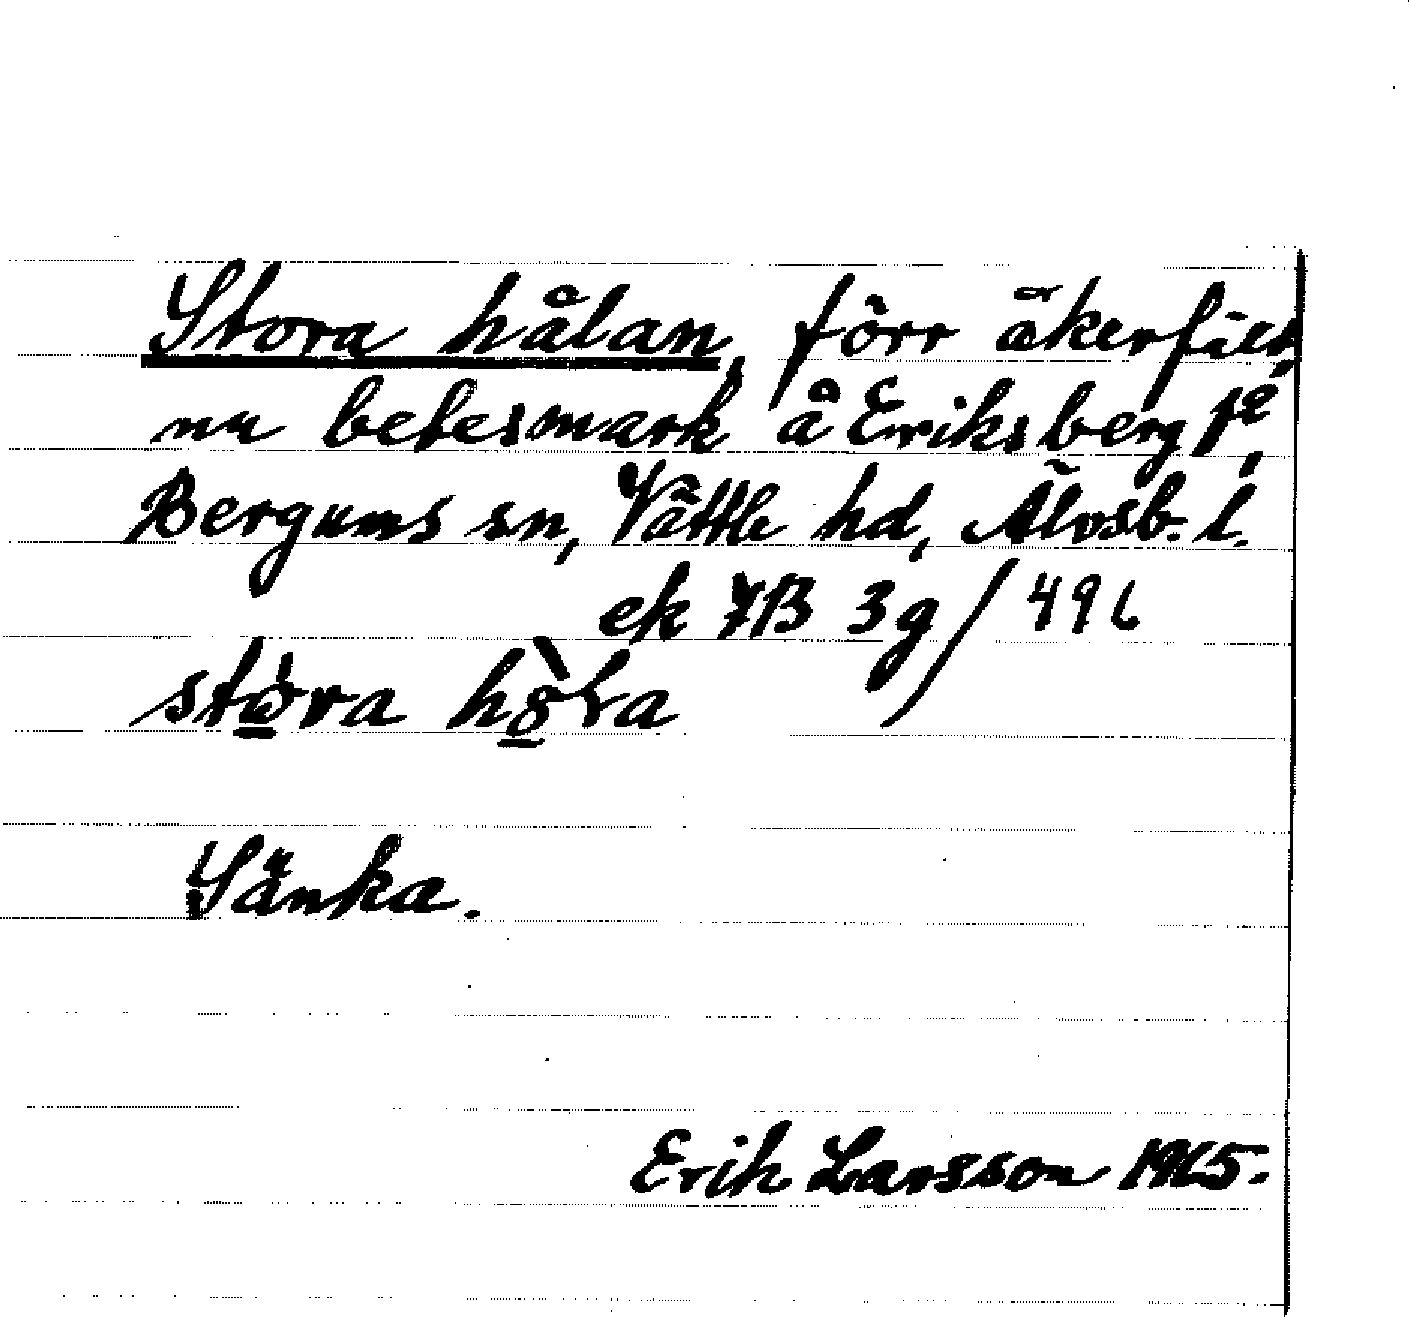 Stora hålan, förr åkerfält,
nu betesmark å Eriksberg 1²,
Bergums sn, Vättle hd, Älvsb. l.
ek 7B 3g/496
stora hola
Sänka.
Erik Larsson 1965.